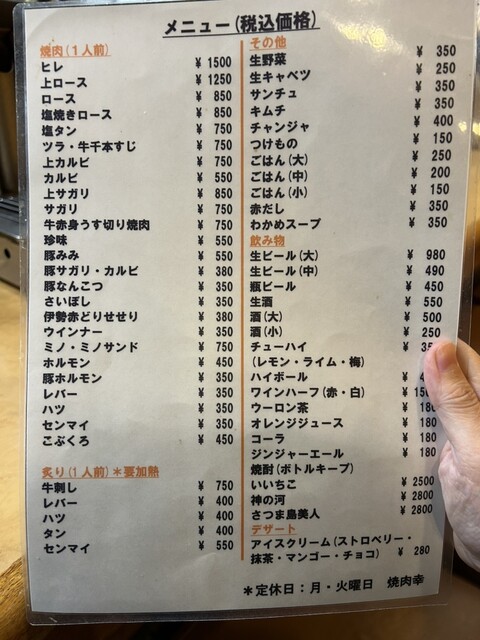 メニュー(税込価格)
焼肉(1人前)
ヒレ ¥ 1500
上ロース ¥ 1250
ロース ¥ 850
塩焼きロース ¥ 850
塩タン ¥ 750
ツラ・牛千本すじ ¥ 750
上カルビ ¥ 750
カルビ ¥ 550
上サガリ ¥ 850
サガリ ¥ 750
牛赤身うす切り焼肉 ¥ 750
珍味 ¥ 550
豚みみ ¥ 550
豚サガリ・カルビ ¥ 380
豚なんこつ ¥ 350
さいぼし ¥ 350
伊勢赤どりせせり ¥ 380
ウインナー ¥ 350
ミノ・ミノサンド ¥ 750
ホルモン ¥ 450
豚ホルモン ¥ 350
レバー ¥ 350
ハツ ¥ 350
センマイ ¥ 350
こぶくろ ¥ 450
炙り(1人前)＊要加熱
牛刺し ¥ 750
レバー ¥ 400
ハツ ¥ 400
タン ¥ 400
センマイ ¥ 550
その他
生野菜 ¥ 350
生キャベツ ¥ 250
サンチュ ¥ 350
キムチ ¥ 350
チャンジャ ¥ 400
つけもの ¥ 150
ごはん(大) ¥ 250
ごはん(中) ¥ 200
ごはん(小) ¥ 150
赤だし ¥ 350
わかめスープ ¥ 350
飲み物
生ビール(大) ¥ 980
生ビール(中) ¥ 490
瓶ビール ¥ 450
生酒 ¥ 550
酒(大) ¥ 500
酒(小) ¥ 250
チューハイ ¥
(レモン・ライム・梅)
ハイボール ¥
ワインハーフ(赤・白) ¥
ウーロン茶 ¥ 180
オレンジジュース ¥ 180
コーラ ¥ 180
ジンジャーエール ¥ 180
焼酎(ボトルキープ)
いいちこ ¥ 2500
神の河 ¥ 2800
さつま島美人 ¥ 2800
デザート
アイスクリーム(ストロベリー・
抹茶・マンゴー・チョコ) ¥ 280
＊定休日：月・火曜日 焼肉幸